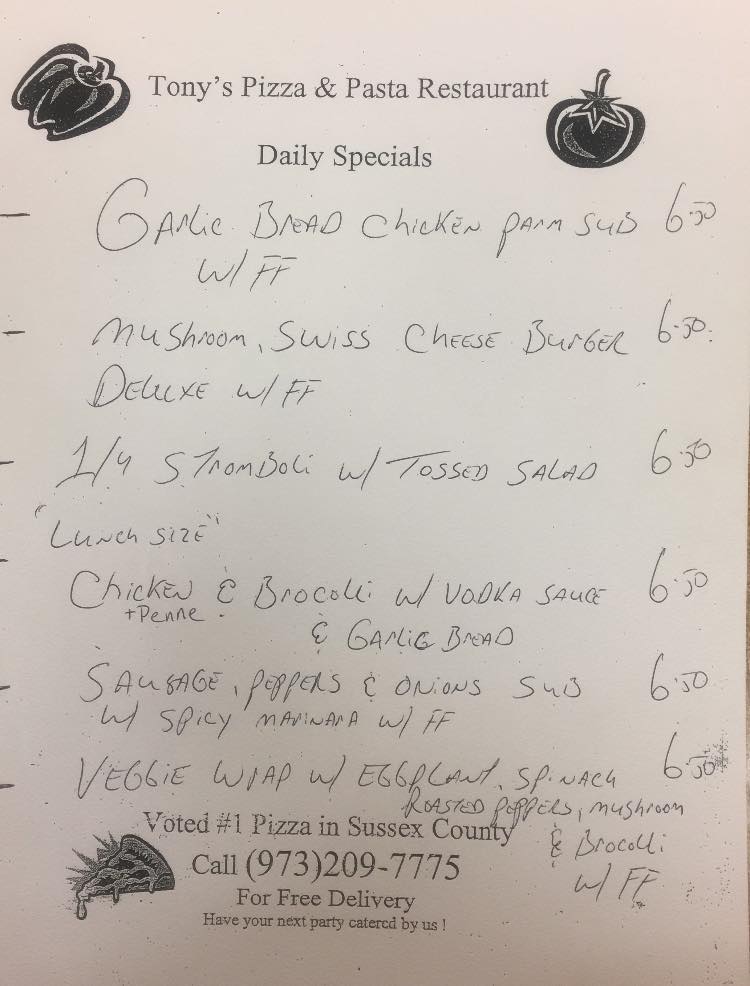 Tony's Pizza & Pasta Restaurant
Daily Specials
Garlic Bread Chicken Parm Sub 6.50
w/ FF
Mushroom, Swiss Cheese Burger 6.50
Deluxe w/ FF
1/4 Stromboli w/ Tossed Salad 6.50
"Lunch Size"
Chicken & Brocolli w/ Vodka Sauce 6.50
+Penne
& Garlic Bread
Sausage, Peppers & Onions Sub 6.50
w/ Spicy Marinara w/ FF
Veggie Wrap w/ Eggplant, Spinach 6.50
Roasted Peppers, Mushroom
& Brocolli
w/ FF
Voted #1 Pizza in Sussex County
Call (973)209-7775
For Free Delivery
Have your next party catered by us !